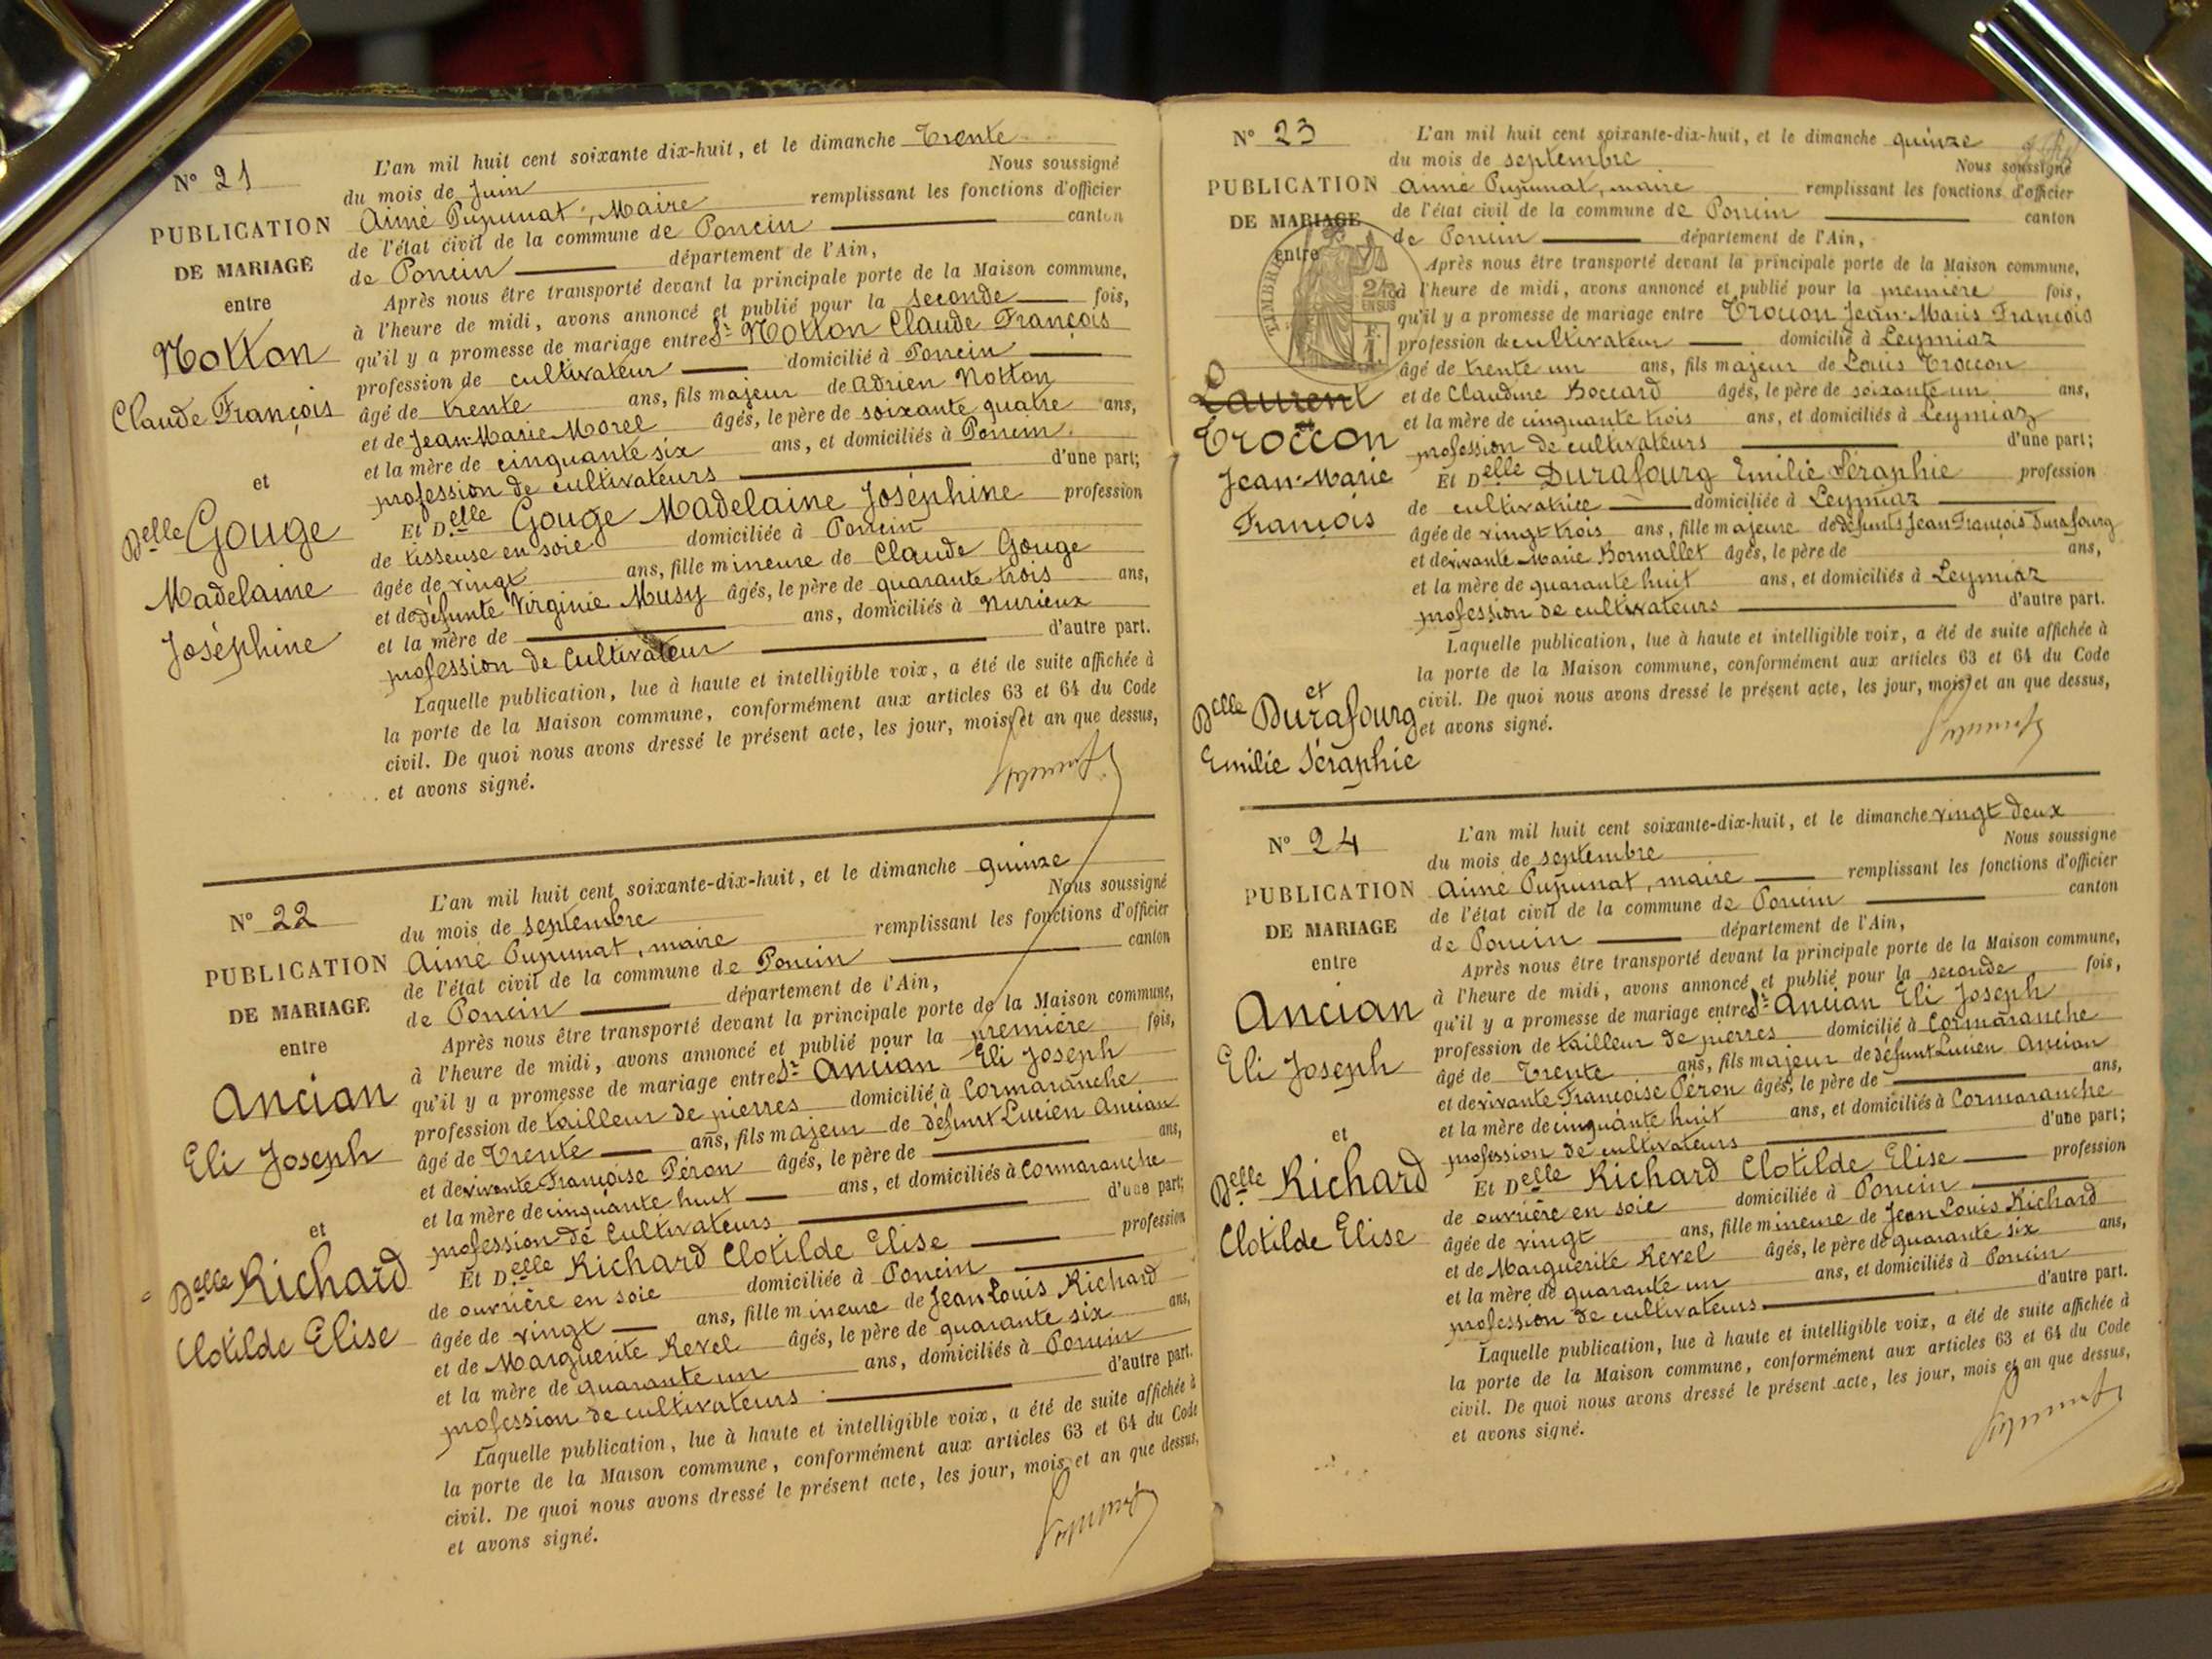 N° 21
PUBLICATION
DE MARIAGE
entre
Notton
Claude François
et
Delle Gouge
Madelaine
Joséphine
L'an mil huit cent soixante dix-huit, et le dimanche Trente
du mois de Juin Nous soussigné
Aimé Pupunat, Maire remplissant les fonctions d'officier
de l'état civil de la commune de Poncin canton
de Poncin département de l'Ain,
Après nous être transporté devant la principale porte de la Maison commune,
à l'heure de midi, avons annoncé et publié pour la seconde fois,
qu'il y a promesse de mariage entre Sr Notton Claude François
profession de cultivateur domicilié à Poncin
âgé de trente ans, fils majeur de Adrien Notton
et de Jean-Marie Morel âgés, le père de soixante quatre ans,
et la mère de cinquante six ans, et domiciliés à Poncin
profession de cultivateurs d'une part;
Et Delle Gouge Madelaine Joséphine profession
de tisseuse en soie domiciliée à Poncin
âgée de vingt ans, fille mineure de Claude Gouge
et de défunte Virginie Musy âgés, le père de quarante trois ans,
et la mère de ans, domiciliés à Nurieux
profession de Cultivateur d'autre part.
Laquelle publication, lue à haute et intelligible voix, a été de suite affichée à
la porte de la Maison commune, conformément aux articles 63 et 64 du Code
civil. De quoi nous avons dressé le présent acte, les jour, mois et an que dessus,
et avons signé.
Pupunat
N° 22
PUBLICATION
DE MARIAGE
entre
Ancian
Eli Joseph
et
Delle Richard
Clotilde Elise
L'an mil huit cent soixante-dix-huit, et le dimanche quinze
du mois de septembre Nous soussigné
Aimé Pupunat, maire remplissant les fonctions d'officier
de l'état civil de la commune de Poncin canton
de Poncin département de l'Ain,
Après nous être transporté devant la principale porte de la Maison commune,
à l'heure de midi, avons annoncé et publié pour la première fois,
qu'il y a promesse de mariage entre Sr Ancian Eli Joseph
profession de tailleur de pierres domicilié à Cormaranche
âgé de Trente ans, fils majeur de défunt Lucien Ancian
et de vivante Françoise Péron âgés, le père de ans,
et la mère de cinquante huit ans, et domiciliés à Cormaranche
profession de Cultivateurs d'une part;
Et Delle Richard Clotilde Elise profession
de ouvrière en soie domiciliée à Poncin
âgée de vingt ans, fille mineure de Jean Louis Richard
et de Marguerite Revel âgés, le père de quarante six ans,
et la mère de quarante un ans, domiciliés à Poncin
profession de cultivateurs d'autre part.
Laquelle publication, lue à haute et intelligible voix, a été de suite affichée à
la porte de la Maison commune, conformément aux articles 63 et 64 du Code
civil. De quoi nous avons dressé le présent acte, les jour, mois et an que dessus,
et avons signé.
Pupunat
N° 23
PUBLICATION
DE MARIAGE
entre
TIMBRE
Laurent
Troccon
Jean-Marie
François
et
Delle Durafourg
Emilie Séraphie
L'an mil huit cent soixante-dix-huit, et le dimanche quinze
du mois de septembre Nous soussigné
Aimé Pupunat, maire remplissant les fonctions d'officier
de l'état civil de la commune de Poncin canton
de Poncin département de l'Ain,
Après nous être transporté devant la principale porte de la Maison commune,
à l'heure de midi, avons annoncé et publié pour la première fois,
qu'il y a promesse de mariage entre Troccon Jean-Marie François
profession de cultivateur domicilié à Leymiaz
âgé de trente un ans, fils majeur de Louis Troccon
et de Claudine Boccard âgés, le père de soixante un ans,
et la mère de cinquante trois ans, et domiciliés à Leymiaz
profession de cultivateurs d'une part;
Et Delle Durafourg Emilie Séraphie profession
de cultivatrice domiciliée à Leymiaz
âgée de vingt trois ans, fille majeure de défunts Jean François Durafourg
et de vivante Marie Bornallet âgés, le père de ans,
et la mère de quarante huit ans, et domiciliés à Leymiaz
profession de cultivateurs d'autre part.
Laquelle publication, lue à haute et intelligible voix, a été de suite affichée à
la porte de la Maison commune, conformément aux articles 63 et 64 du Code
civil. De quoi nous avons dressé le présent acte, les jour, mois et an que dessus,
et avons signé.
Pupunat
N° 24
PUBLICATION
DE MARIAGE
entre
Ancian
Eli Joseph
et
Delle Richard
Clotilde Elise
L'an mil huit cent soixante-dix-huit, et le dimanche vingt deux
du mois de septembre Nous soussigné
Aimé Pupunat, maire remplissant les fonctions d'officier
de l'état civil de la commune de Poncin canton
de Poncin département de l'Ain,
Après nous être transporté devant la principale porte de la Maison commune,
à l'heure de midi, avons annoncé et publié pour la seconde fois,
qu'il y a promesse de mariage entre Sr Ancian Eli Joseph
profession de tailleur de pierres domicilié à Cormaranche
âgé de Trente ans, fils majeur de défunt Lucien Ancian
et de vivante Françoise Péron âgés, le père de ans,
et la mère de cinquante huit ans, et domiciliés à Cormaranche
profession de cultivateurs d'une part;
Et Delle Richard Clotilde Elise profession
de ouvrière en soie domiciliée à Poncin
âgée de vingt ans, fille mineure de Jean Louis Richard
et de Marguerite Revel âgés, le père de quarante six ans,
et la mère de quarante un ans, et domiciliés à Poncin
profession de cultivateurs d'autre part.
Laquelle publication, lue à haute et intelligible voix, a été de suite affichée à
la porte de la Maison commune, conformément aux articles 63 et 64 du Code
civil. De quoi nous avons dressé le présent acte, les jour, mois et an que dessus,
et avons signé.
Pupunat